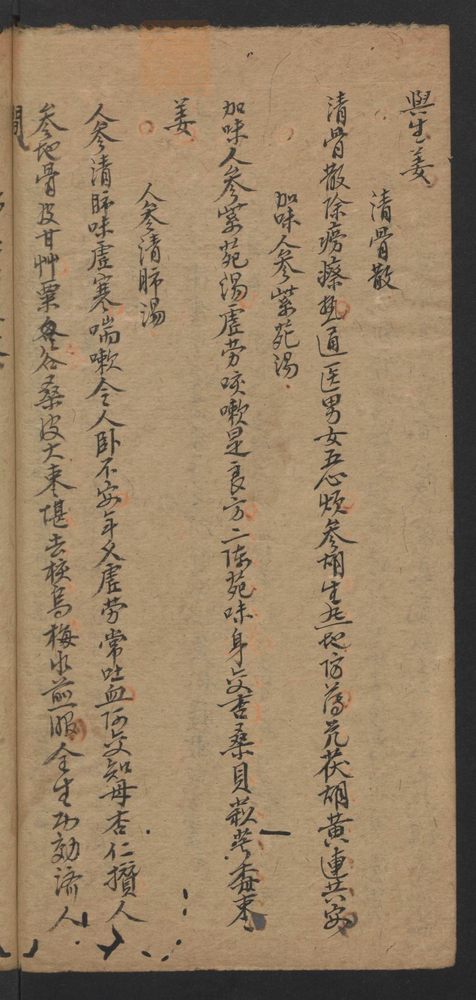 與生姜
清骨散
清骨散除癆瘵熱通医男女五心煩參胡生熟地防薄芃茯胡黄連共安
加味人參紫苑湯
加味人參紫苑湯虛劳咳嗽是良方二陈苑味身皮杏桑貝
姜
人參清肺湯
人參清肺味虛寒喘嗽令人卧不安年久虛劳常吐血阿皮知母杏仁攢人
參地骨皮甘艸粟谷桑皮大枣堪去核烏梅水煎服全生功効済人
間